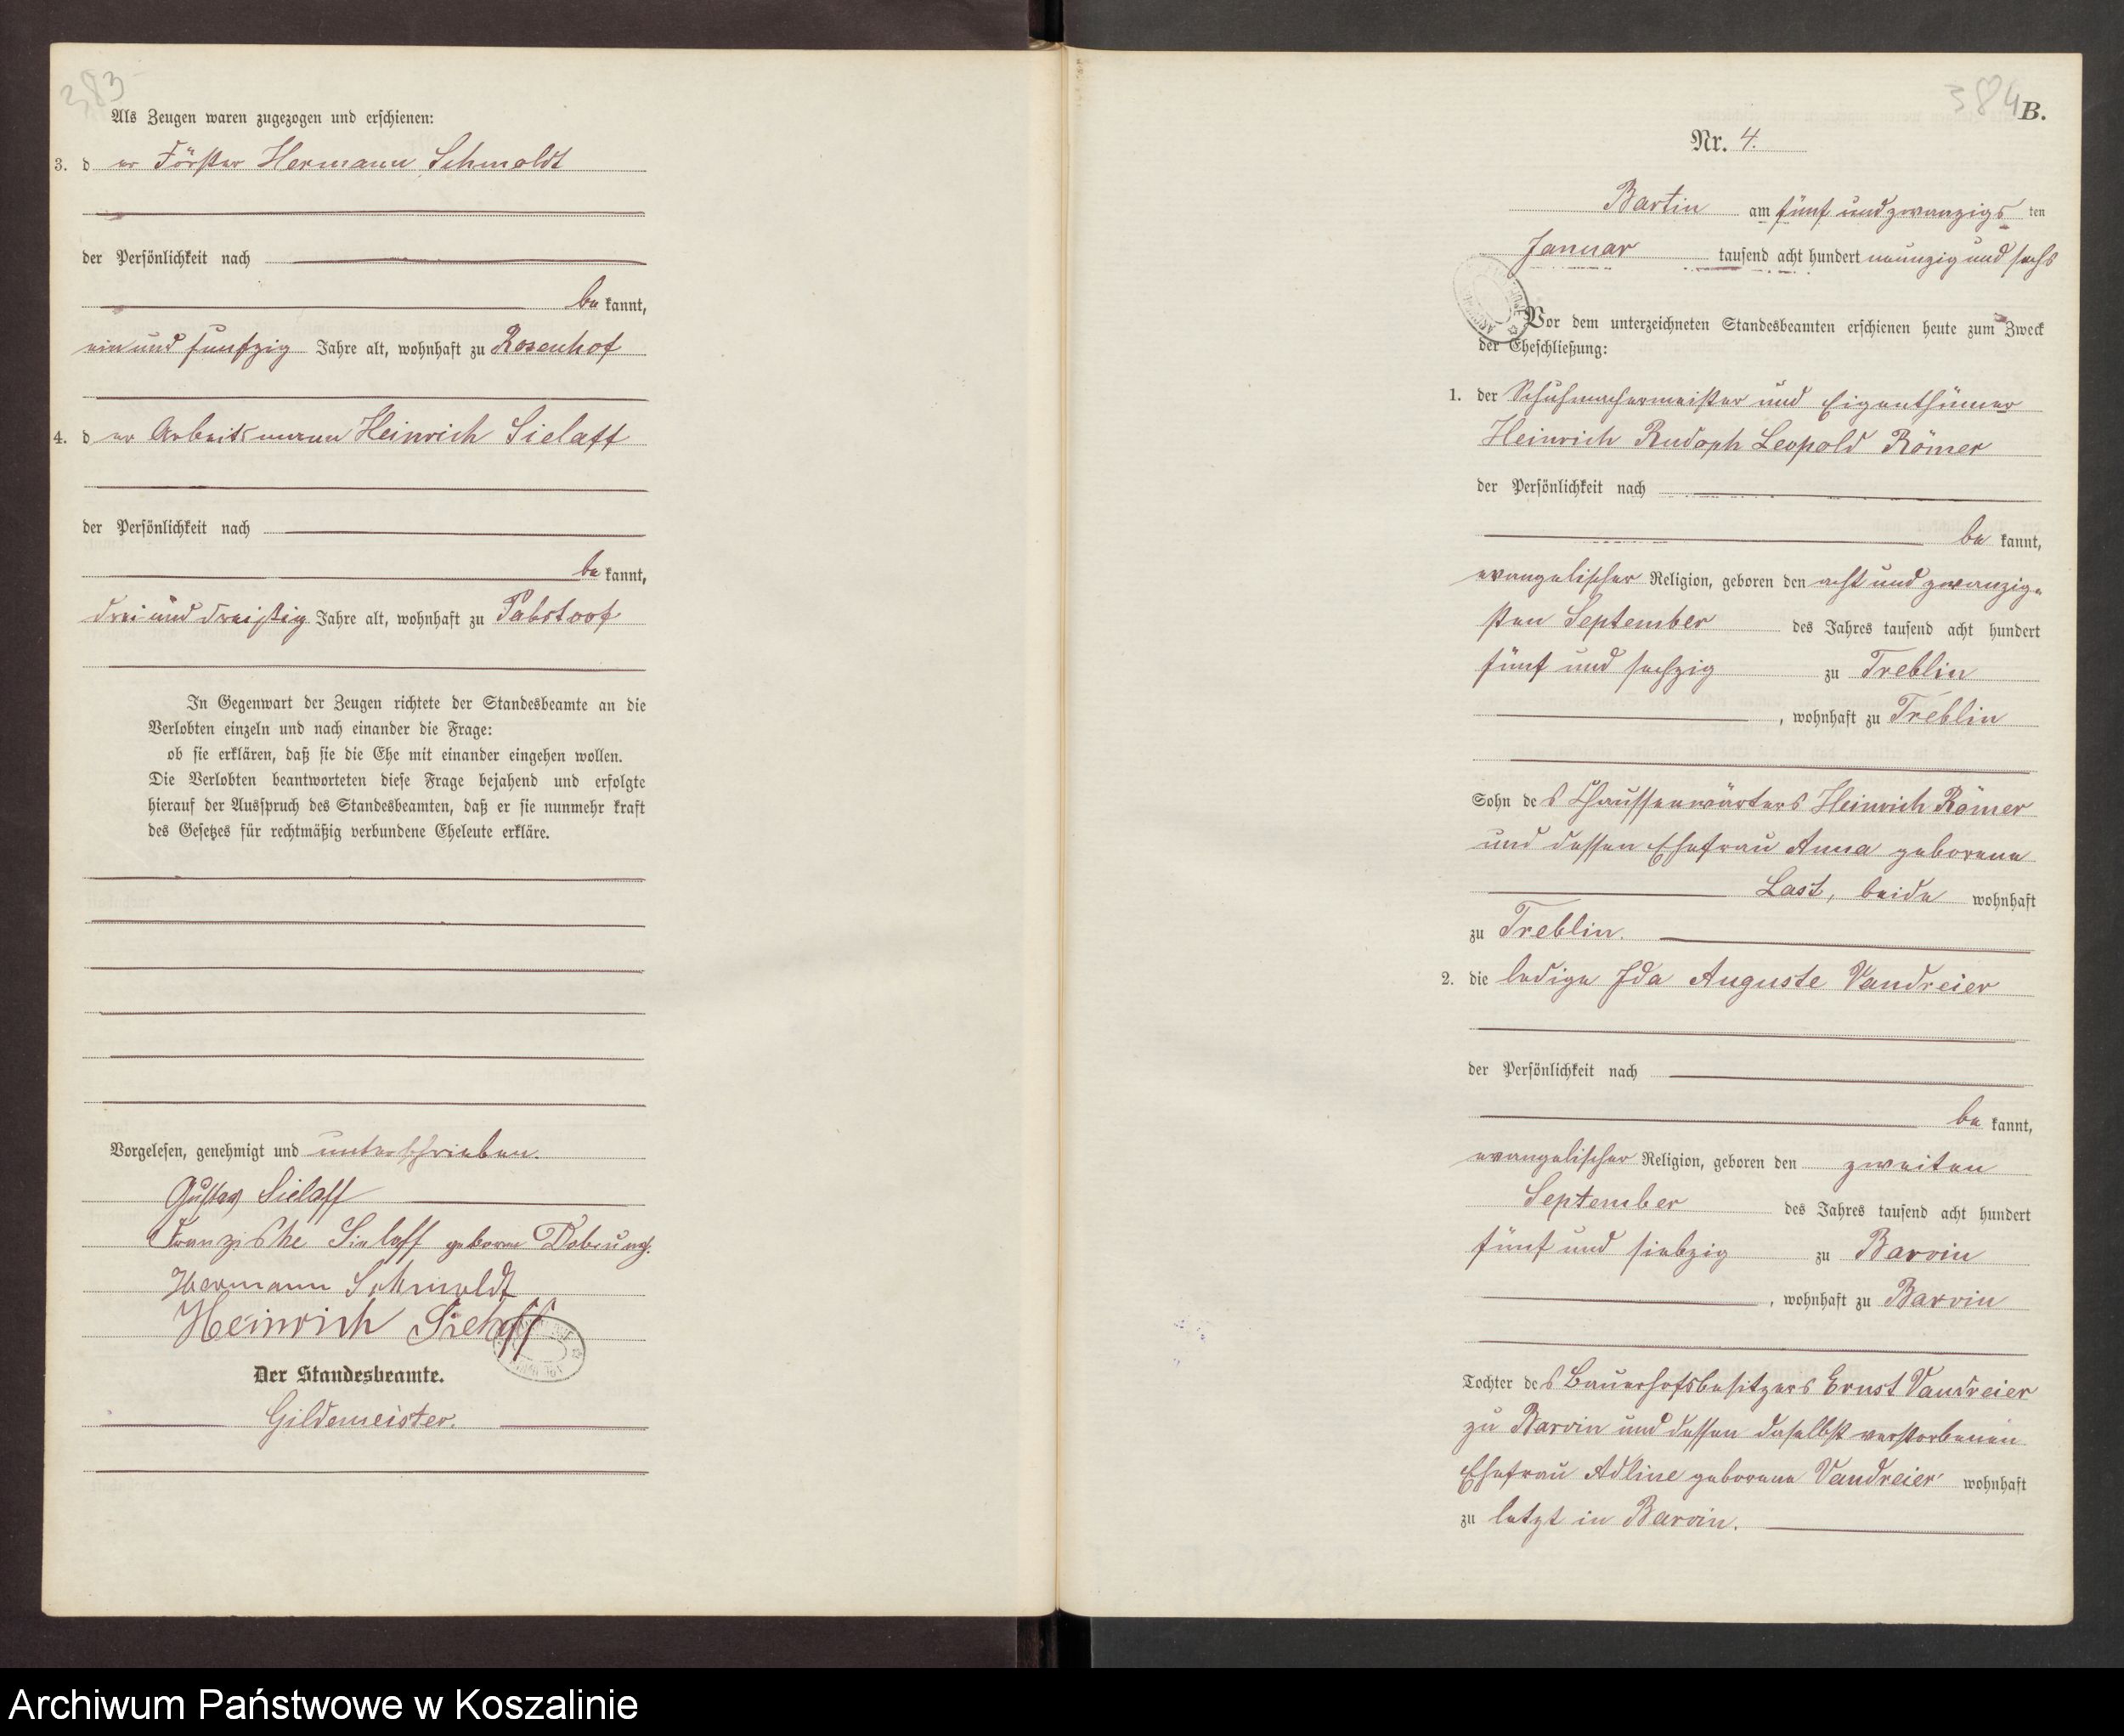 383
Als Zeugen waren zugezogen und erschienen:
3. d er Förster Hermann Schmoldt
der Persönlichkeit nach
be kannt,
ein und fünfzig Jahre alt, wohnhaft zu Rosenhof
4. d er Arbeitsmann Heinrich Sielaff
der Persönlichkeit nach
be kannt,
drei und dreißig Jahre alt, wohnhaft zu
In Gegenwart der Zeugen richtete der Standesbeamte an die
Verlobten einzeln und nach einander die Frage:
ob sie erklären, daß sie die Ehe mit einander eingehen wollen.
Die Verlobten beantworteten diese Frage bejahend und erfolgte
hierauf der Ausspruch des Standesbeamten, daß er sie nunmehr kraft
des Gesetzes für rechtmäßig verbundene Eheleute erkläre.
Vorgelesen, genehmigt und unterschrieben.
Gustav Sielaff
Franziske Sielaff geborne
Hermann Schmoldt
Heinrich Sielaff
Der Standesbeamte.
Gildemeister.
384
B.
Nr. 4.
Bartin am fünf und zwanzigs ten
Januar tausend acht hundert neunzig und sechs
Vor dem unterzeichneten Standesbeamten erschienen heute zum Zweck
der Eheschließung:
1. der Schuhmachermeister und Eigenthümer
Heinrich Rudoph Leopold Römer
der Persönlichkeit nach
be kannt,
evangelischer Religion, geboren den acht und zwanzig-
sten September des Jahres tausend acht hundert
fünf und sechzig zu Treblin
, wohnhaft zu Treblin
Sohn des Chausseewärters Heinrich Römer
und dessen Ehefrau Anna geborene
Last, beide wohnhaft
zu Treblin.
2. die ledige Ida Auguste Vandreier
der Persönlichkeit nach
be kannt,
evangelischer Religion, geboren den zweiten
September des Jahres tausend acht hundert
fünf und siebzig zu Barvin
, wohnhaft zu Barvin
Tochter des Bauerhofsbesitzers Ernst Vandreier
zu Barvin und dessen daselbst verstorbenen
Ehefrau Adline geborene Vandreier wohnhaft
zu letzt in Barvin.
Archiwum Państwowe w Koszalinie